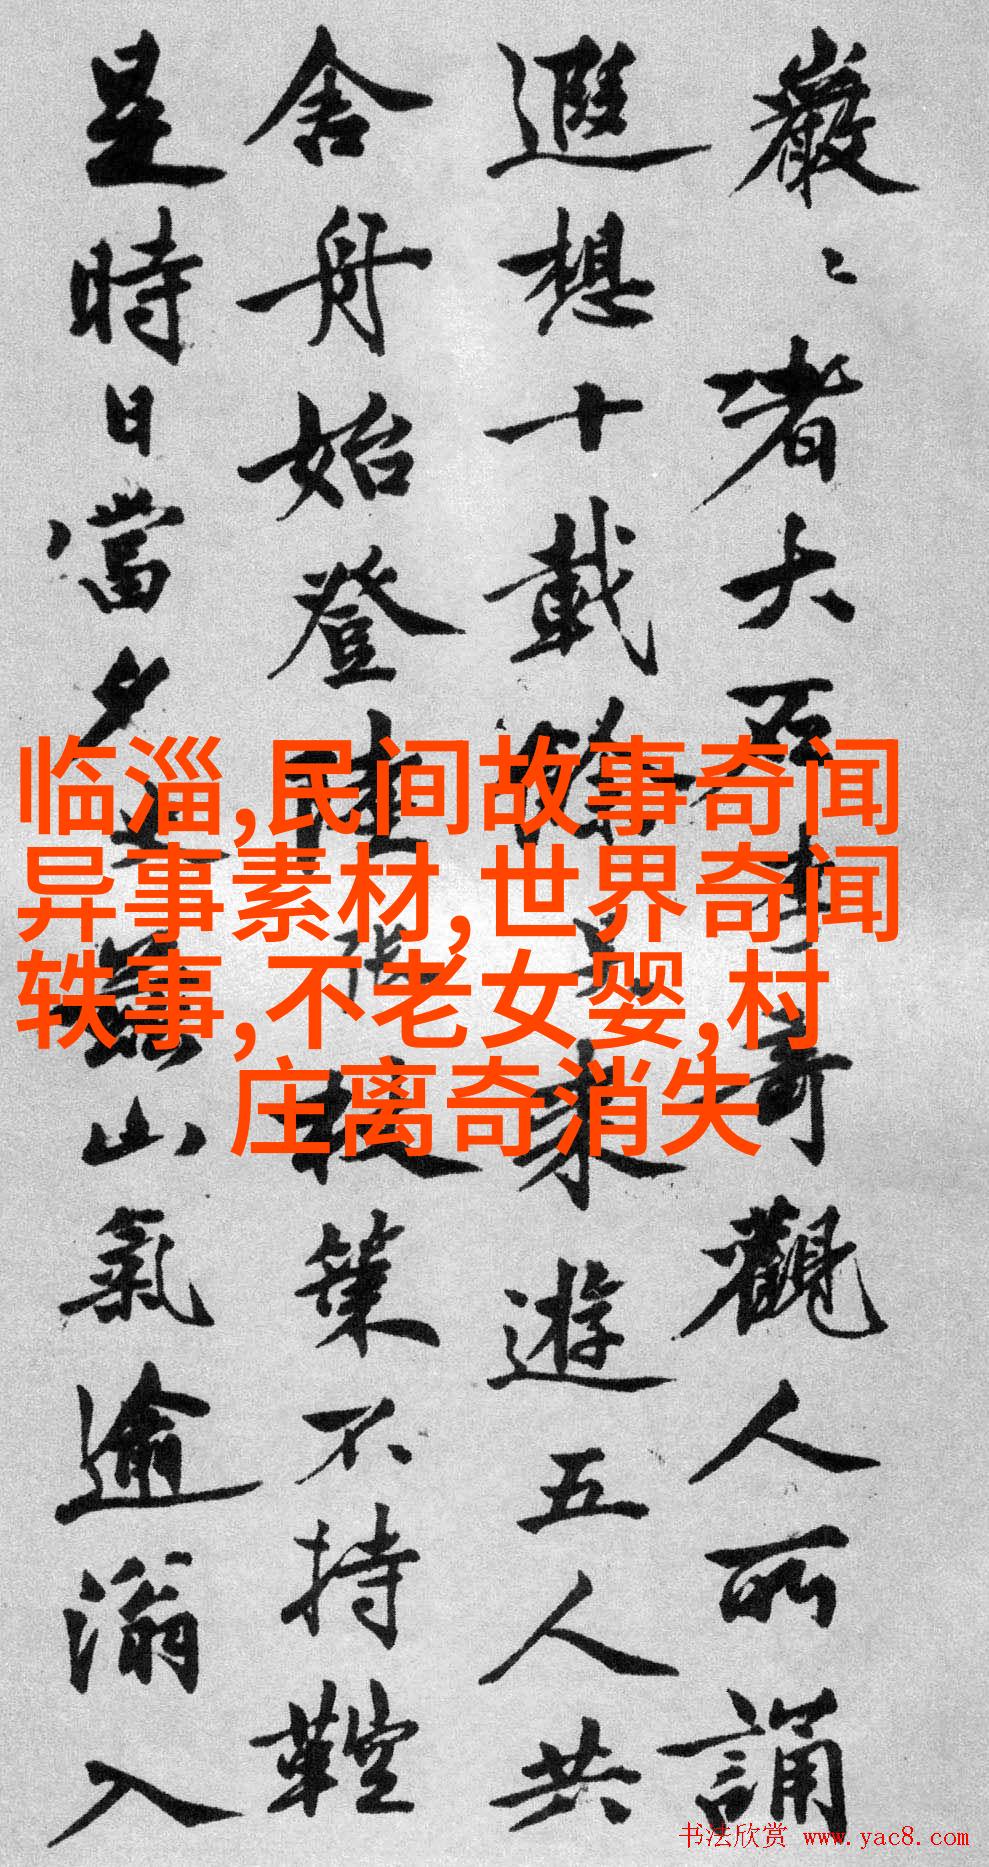 巖〻者大石
奇觀人所誦
遐想十載餘
來遊五人共
舍舟始登陸
杖策不持鞚
是時日當夕
山氣逾滃入
临淄,民间故事奇闻
异事素材,世界奇闻
轶事,不老女婴,村
庄离奇消失
书法欣赏 www.yac8.com